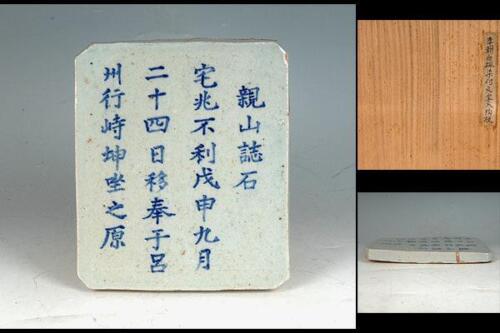 親山誌石
宅兆不利戊申九月
二十四日移奉于呂
州行峙坤坐之原